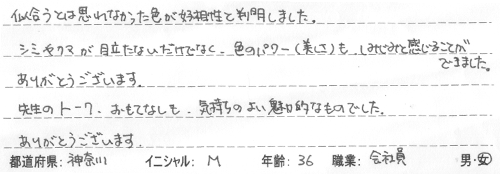 似合うとは思れなかった色が好相性と判明しました。
シミやクスが目立たないだけでなく、色のパワー（美しさ）も、しみじみと感じることが
できました。
ありがとうございます。
先生のトーク、おもてなしも、気持ちのよい魅力的なものでした。
ありがとうございます。
都道府県: 神奈川 イニシャル: M 年齢: 36 職業: 会社員 男・女